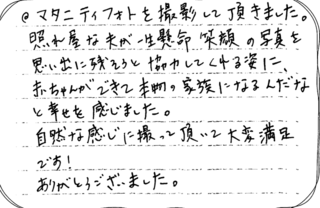 @ マタニティフォトを撮影して頂きました。
照れ屋な夫が一生懸命 笑顔の写真を
思い出に残そうと協力してくれる姿に、
赤ちゃんができて本物の家族になるんだな
と幸せを感じました。
自然な感じに撮って頂いて大変満足
です!
ありがとうございました。